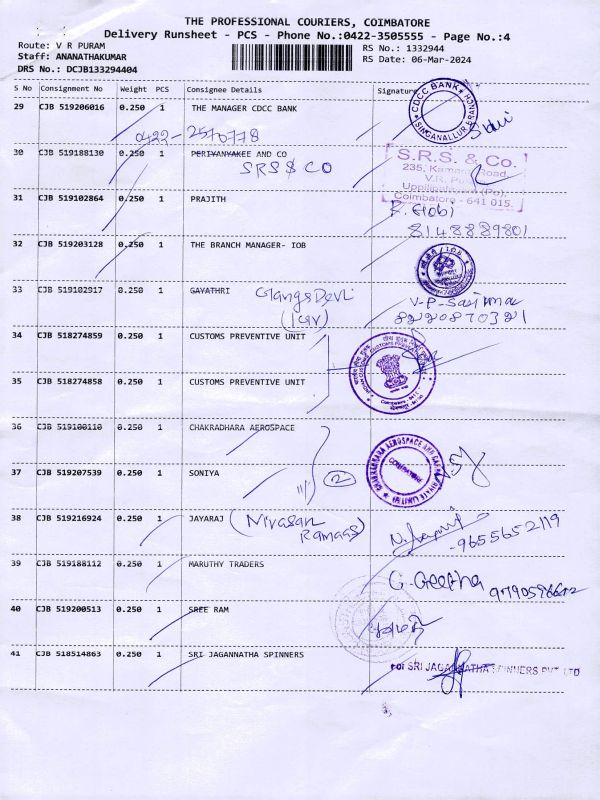 THE PROFESSIONAL COURIERS, COIMBATORE
Delivery Runsheet - PCS - Phone No.:0422-3505555 - Page No.:4
Route: V R PURAM
Staff: ANANATHAKUMAR
DRS No.: DCJB133294404
RS No.: 1332944
RS Date: 06-Mar-2024
S No Consignment No Weight PCS Consignee Details Signature
29 CJB 519206016 0.250 1 THE MANAGER CDCC BANK
CDCC BANK
SINGANALLUR BRANCH
0422-2570778
30 CJB 519188130 0.250 1 PERIYANYAKEE AND CO
SRS & CO
S.R.S. & Co.
235, Kamaraj Road,
V.R. Puram
Uppilipalayam (Po),
Coimbatore - 641 015.
31 CJB 519102864 0.250 1 PRAJITH
R. Gobi
8148889801
32 CJB 519203128 0.250 1 THE BRANCH MANAGER- IOB
33 CJB 519102917 0.250 1 GAYATHRI
8220870321
34 CJB 518274859 0.250 1 CUSTOMS PREVENTIVE UNIT
35 CJB 518274858 0.250 1 CUSTOMS PREVENTIVE UNIT
36 CJB 519100110 0.250 1 CHAKRADHARA AEROSPACE
CHAKRADHARA AEROSPACE AND
37 CJB 519207539 0.250 1 SONIYA
2
38 CJB 519216924 0.250 1 JAYARAJ (Nivasan
Ramaas)
-9655652119
39 CJB 519188112 0.250 1 MARUTHY TRADERS
G. Geetha
40 CJB 519200513 0.250 1 SREE RAM
41 CJB 518514863 0.250 1 SRI JAGANNATHA SPINNERS
For SRI JAGANNATHA SPINNERS PVT. LTD